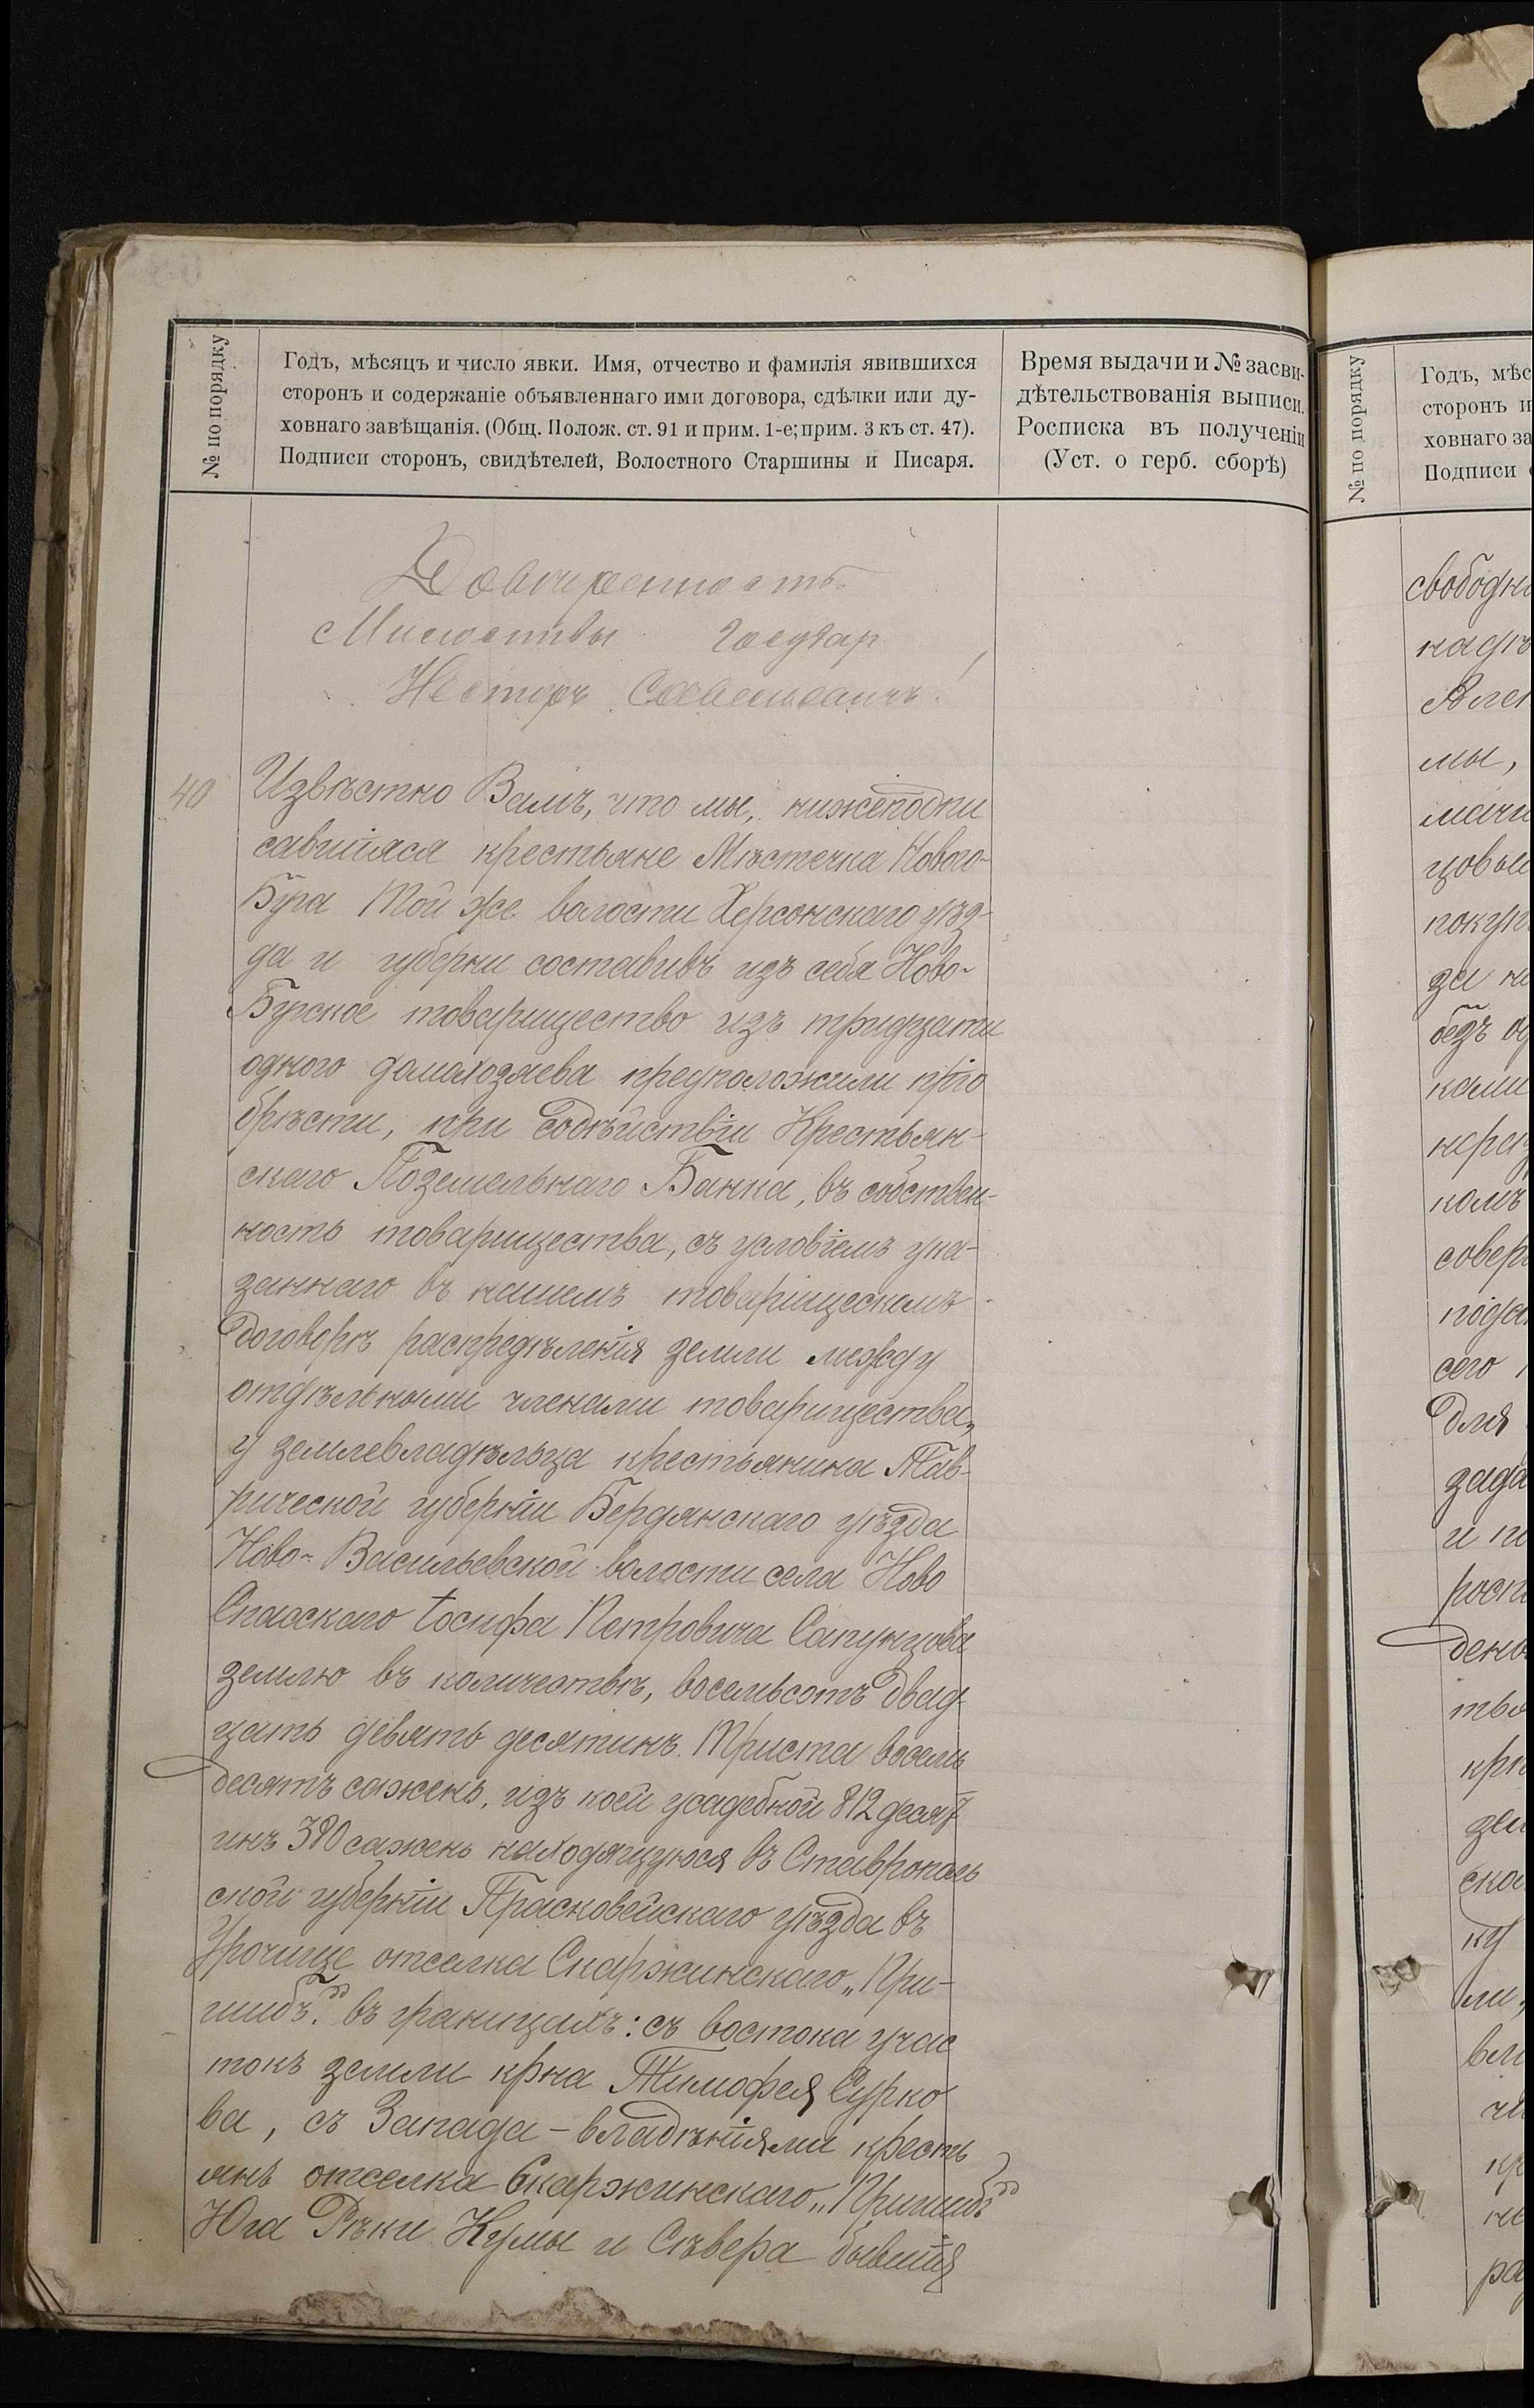 № по порядку
Годъ, мѣсяцъ и число явки. Имя, отчество и фамилія явившихся
сторонъ и содержаніе объявленнаго ими договора, сдѣлки или ду-
ховнаго завѣщанія. (Общ. Полож. ст. 91 и прим. 1-е; прим. 3 къ ст. 47).
Подписи сторонъ, свидѣтелей, Волостного Старшины и Писаря.
Время выдачи и № засви-
дѣтельствованія выписи.
Росписка въ полученіи
(Уст. о герб. сборѣ)
Довѣренность
Милостивы Государ
Несторъ !
40
Извѣстно Вамъ, что мы, нижеподпи
савшіяся крестьяне Мѣстечка Новаго-
Буга Той же волости Херсонскаго уѣз-
да и губерни составивъ изъ себя Ново-
Бугское товарищество изъ тридцати
одного домахозяева предположили пріо
брѣсти, при содѣйствіи Крестьян-
скаго Поземельнаго Банка, въ собствен-
ность товарищества, съ условіемъ ука-
заннаго въ нашемъ товарищескомъ
договорѣ распредѣленія земли между
отдѣльными членами товарищества,
у землевладѣльца крестьянина Тав-
рической губерніи Бердянскаго уѣзда
Ново-Васильевской волости села Ново
Спасскаго Іосифа Петровича Сапунцова
землю въ количествѣ, восемьсотъ двад-
цать девять десятинъ. Триста восемь
десятъ сажень, изъ коей усадебной 812 десят
инъ 380 сажень находящуюся въ Ставрополь
ской губерніи Прасковейскаго уѣзда въ
Урочище отселка Скаржинскаго „При-
шибъ". въ границахъ: съ востока учас
токъ земли крна Тимофея Сурко
ва, съ Запада - владѣніями кресть
янъ отселка Скаржинскаго „Пришибъ"
Юга Рѣки Кумы и Сѣвера бывшія
№ по порядку
Годъ, мѣс
сторонъ и
ховнаго за
Подписи
свободн
надѣ
Але
мы,
цовы
покуп
да н
безъ
ками
комъ
совер
сего
Для
зада
и по
день